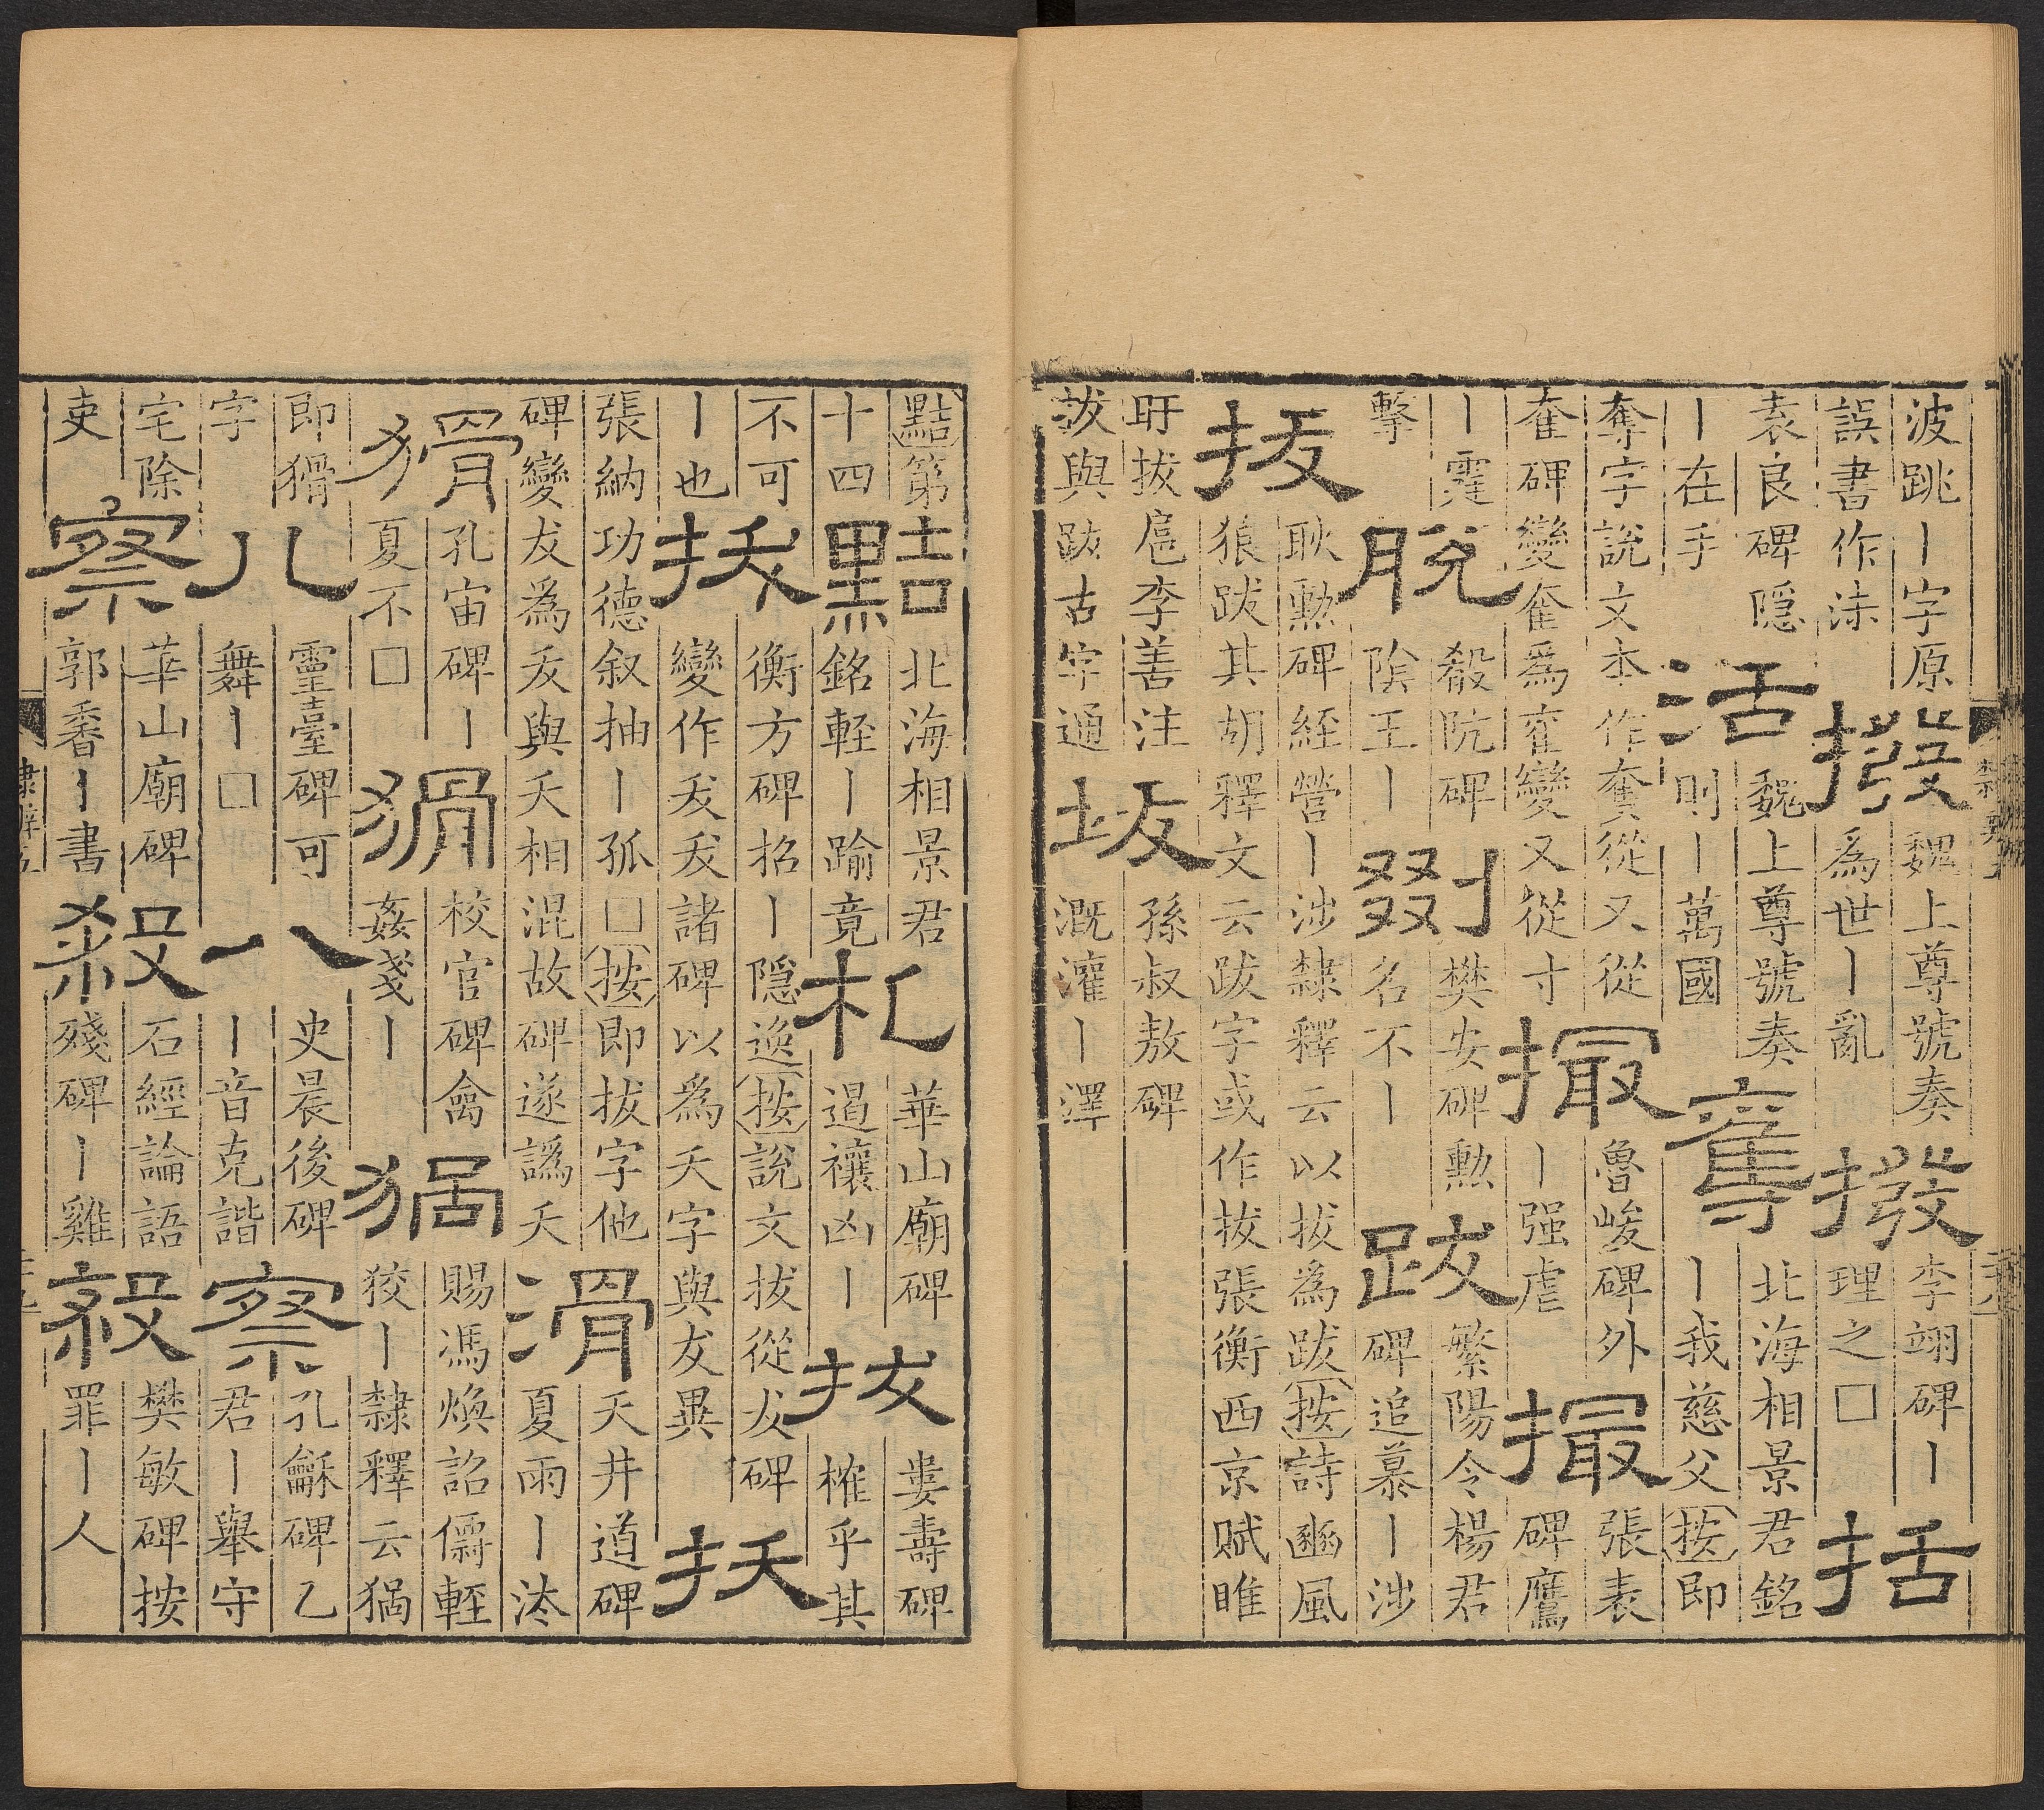 波跳丨字原
誤書作㳒
撥
魏上尊號奏
為世丨亂
撥
李翊碑丨
理之□
括
袁良碑隱
丨在手
活
魏上尊號奏
則丨萬國
奪
北海相景君銘
丨我慈父按即
奪字說文本作奪從又從
奞碑變奞爲奞變又從寸
撮
魯峻碑外
丨强虐
撮
張表
碑鷹
丨霆
擊
脫
殽阬碑
陰王丨
剟
樊安碑勲
名不丨
跋
繁陽令楊君
碑追慕丨涉
拔
耿勲碑經營丨涉隸釋云以拔為跋按詩豳風
狼跋其胡釋文云跋字或作拔張衡西京賦睢
盱拔扈李善注
拔與跋古字通
坺
孫叔敖碑
溉灌丨澤
黠第
十四
黠
北海相景君
銘輕丨踰竟
札
華山廟碑
遏禳凶丨
拔
婁壽碑
榷乎其
不可
丨也
拔
衡方碑招丨隱逸按說文拔從犮碑
變作犮犮諸碑以爲夭字與犮異
扷
張納功德叙抽丨孤□按即拔字他
碑變犮爲犮與夭相混故碑遂譌夭
滑
天井道碑
夏雨丨汰
猾
孔宙碑丨
夏不□
猾
校官碑禽
姦戔丨
猧
賜馮煥詔儒輕
狡丨隸釋云猧
即猾
字
八
靈臺碑可
舞丨□
八
史晨後碑
丨音克諧
察
孔龢碑乙
君丨舉守
宅除
吏
察
華山廟碑
郭香丨書
殺
石經論語
殘碑丨雞
殺
樊敏碑按
罪丨人